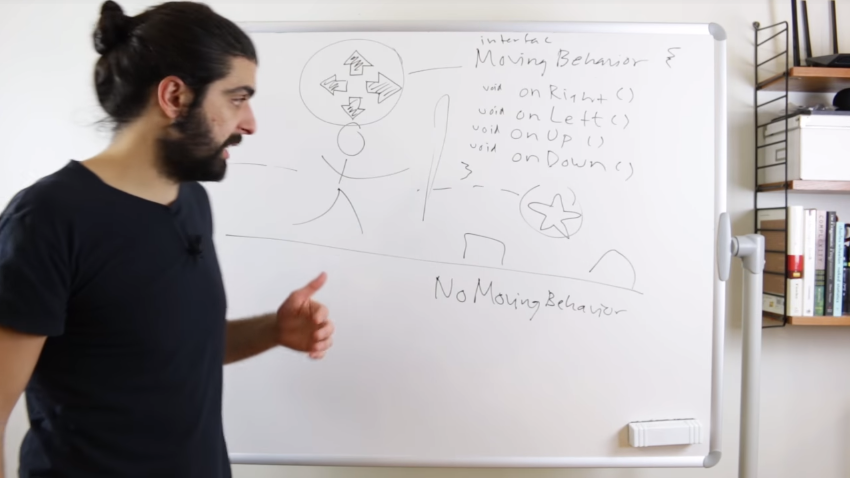 interfac
Moving Behavior {
void onRight()
void onLeft()
void onUp()
void onDown()
}
No Moving Behavior